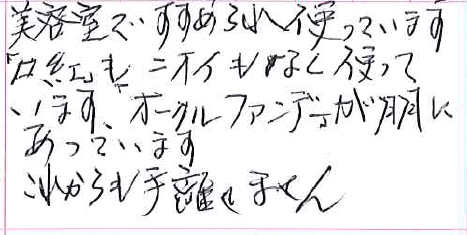 美容室ですすめられ使っています
口紅もニオイもなく使って
います、オークルファンデーが肌に
あっています
これからも手離せません